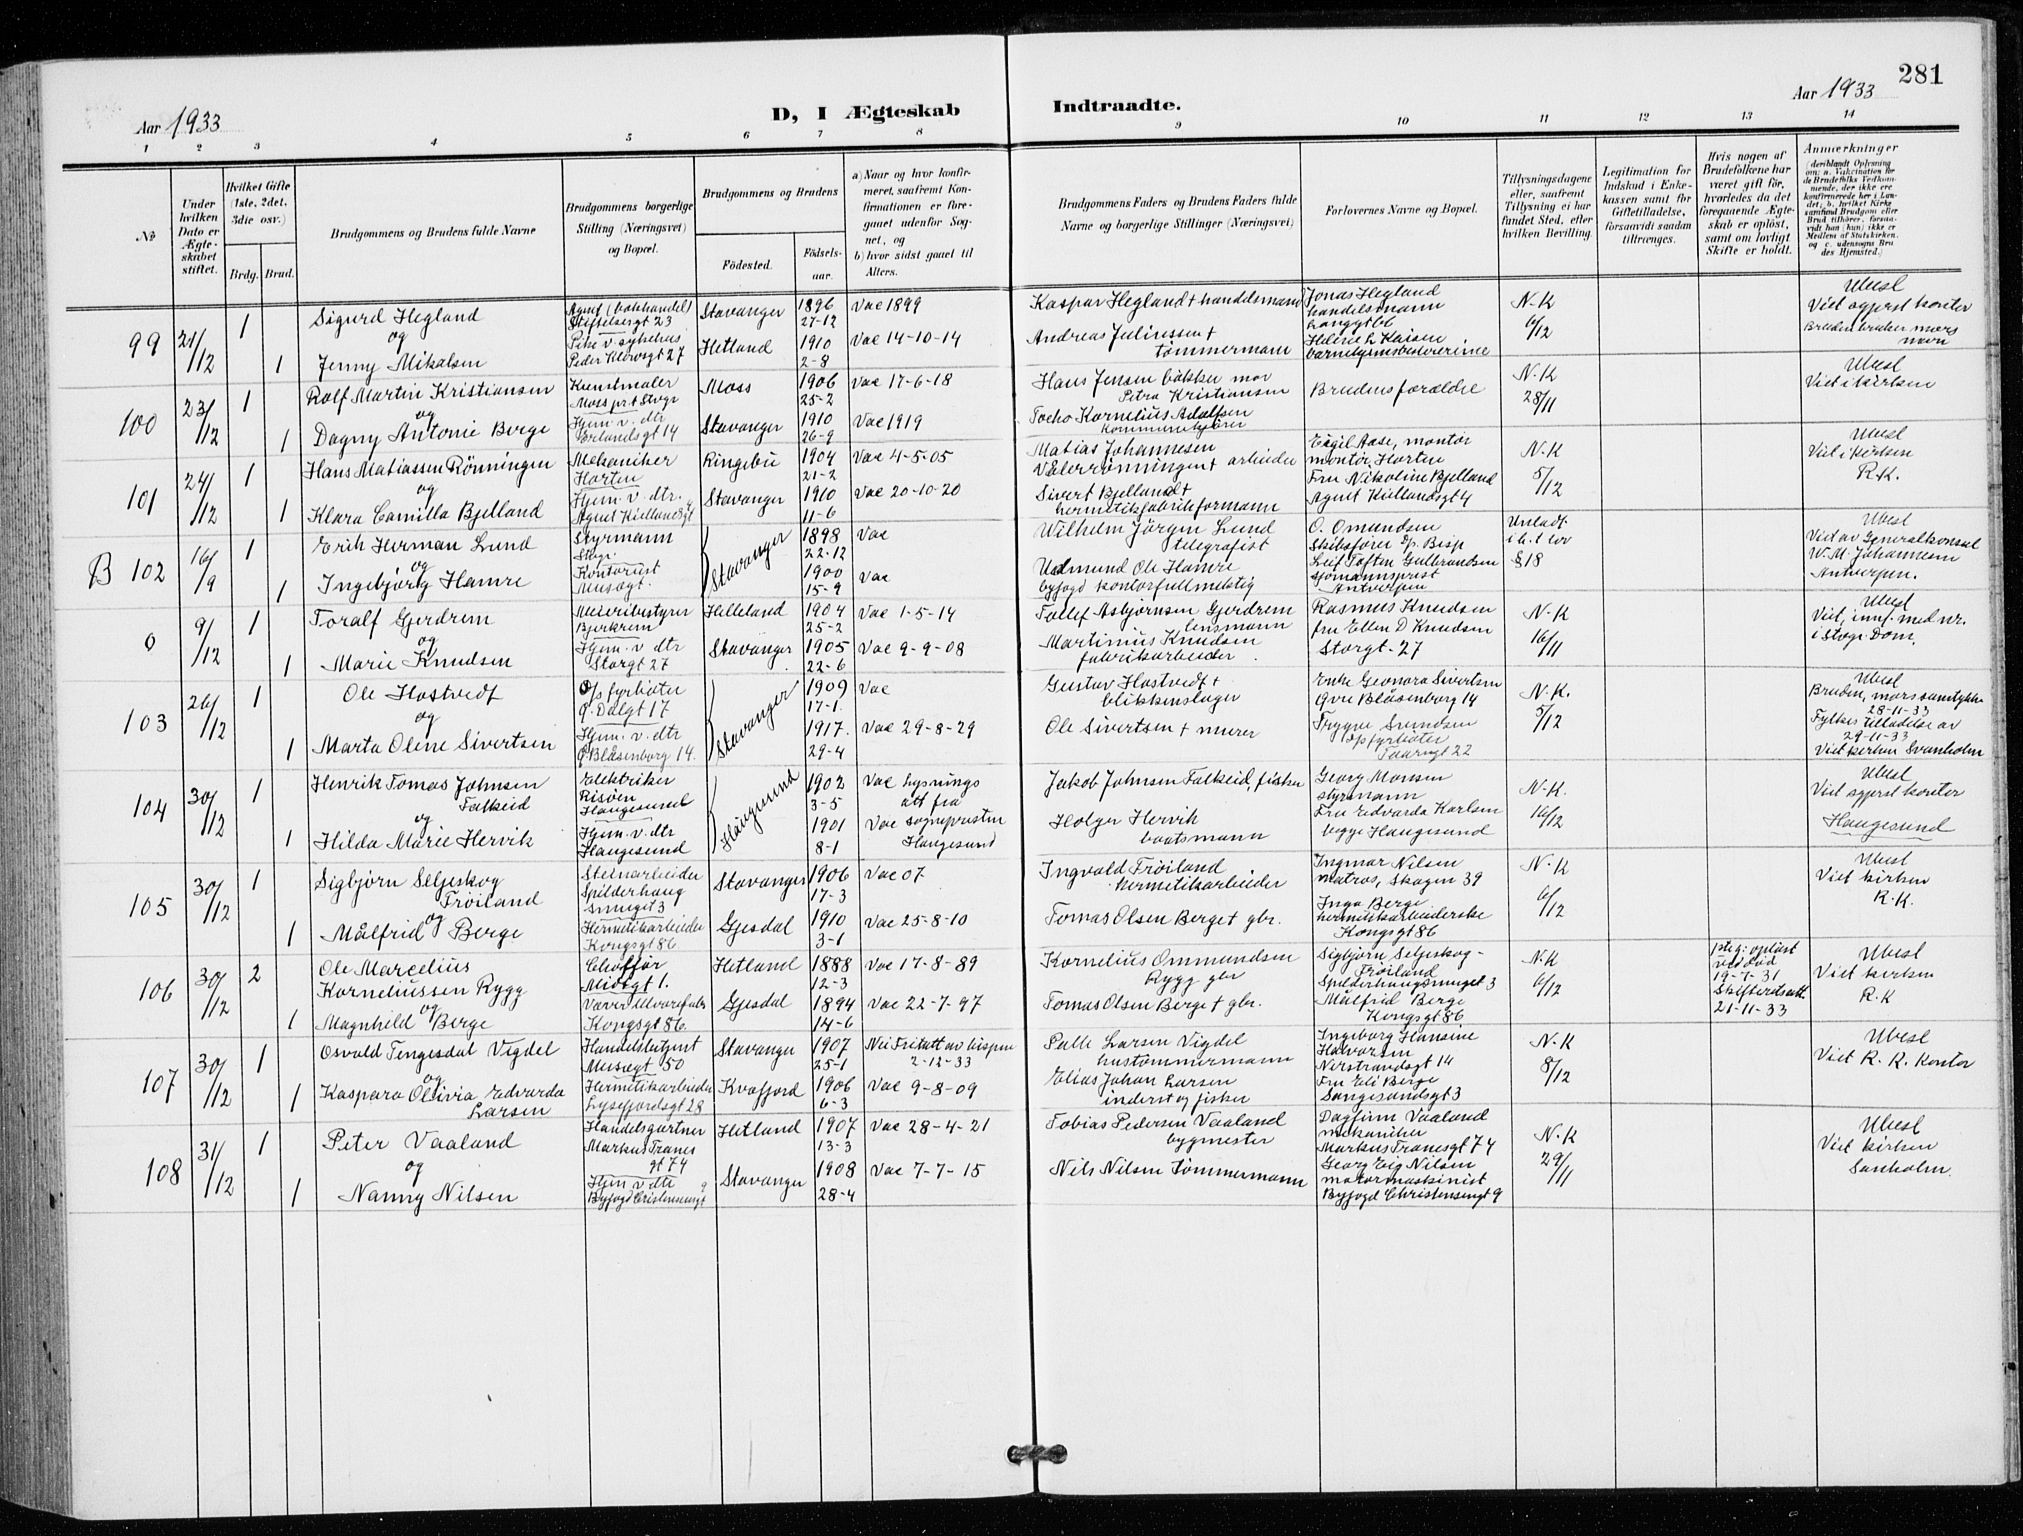 281
Aar 1933
D, I Ægteskab Indtraadte.
Aar 1933
1 2 3 4 5 6 7 8 9 10 11 12 13 14
№
Under hvilken Dato er Ægteskabet stiftet.
Hvilket Gifte (1ste, 2det, 3die osv.)
Brdg. Brud.
Brudgommens og Brudens fulde Navne
Brudgommens borgerlige Stilling (Næringsvei) og Bopæl.
Brudgommens og Brudens
Födested.
Födselsaar.
a) Naar og hvor konfirmeret, saafremt Konfirmationen er foregaaet udenför Sognet, og
b) hvor sidst gaaet til Alters.
Brudgommens Faders og Brudens Faders fulde Navne og borgerlige Stillinger (Næringsvei)
Forlovernes Navne og Bopæl.
Tillysningsdagene eller, saafremt Tillysning ei har fundet Sted, efter hvilken Bevilling.
Legitimation for Indskud i Enkekassen samt for Giftetilladelse, forsaavidt saadan tiltrænges.
Hvis nogen af Brudefolkene har været gift för, hvorledes da det foregaaende Ægteskab er oplöst, samt om lovligt Skifte er holdt.
Anmærkninger
(deriblandt Oplysning om: a. Vakcination for de Brudefolks Vedkommende, der ikke ere konfirmerede her i Landet; b. hvilket Kirkesamfund Brudgom eller Brud tilhörer, forsaavidt han (hun) ikke er Medlem af Statskirken, og c. udensogns Brudes Hjemsted.)
99 21/12 1 Sigurd Hegland Agent (bokhandel) Stiftelsesgt 23 Stavanger 1896 27-12 Vac 1899 Kaspar Hegland + handelsmann Jonas Hegland handelsmann Langgt 66 N.K 6/12 Ubesl Viet sgprst kontor
og
1 Jenny Mikalsen Pike v. sykehus Peder Klowsgt 27 Hetland 1910 2-8 Vac 14-10-14 Andreas Julinessen + tømmermann Helene L Kaisen barnehjemsbestyrerinne Bruden bruker mors navn
100 23/12 1 Rolf Martin Kristiansen Kunstmaler Moss prt Stvgr Moss 1906 25-2 Vac 17-6-18 Hans Jensen bakker mor Petra Kristiansen Brudens forældre N.K 28/11 Ubesl Viet i kirken
og
1 Dagny Antonie Berge Hjem. v. dtr Erlandsgt 14 Stavanger 1910 26-9 Vac 1919 Tocho Kornelius Adolfsen kommunekjører
101 24/12 1 Hans Matiassen Rönningen Mekaniker Horten Ringebu 1904 21-2 Vac 4-5-05 Matias Johannesen Välerrønningen + arbeider Eigil Aase, montör montör Horten N.K 5/12 Ubesl Viet i kirken R.K.
og
1 Klara Camilla Bjelland Hjem. v. dtr. Agnet Kiellandsgt 4 Stavanger 1910 11-6 Vac 20-10-20 Sivert Bjelland + hermetikfabrikformann Fru Nikoline Bjelland Agnet Kiellandsgt 4
B 102 16/9 1 Erik Herman Lund Styrmann Stvgr. Stavanger 1898 22-12 Vac Wilhelm Jörgen Lund telegrafist O. Omundsen Skibsfører D/p. Bisp Unladt i h. t lov § 18 Ubesl Viet av Generalkonsul W. M. Johannesen Antwerpen.
og
1 Ingebjörg Hamre Kontorist Musegt. 1900 15-9 Vac Udmund Ole Hamre byfogd kontorfullmektig Leif Toften Gulbrandsen sjömannsprest Antwerpen
0 9/12 1 Toralf Gjerdrem Meieribestyrer Bjerkrem Helleland 1904 25-2 Vac 1-5-14 Tollef Asbjørnsen Gjerdrem lensmann Rasmus Knudsen fru Ellen D Knudsen Storgt. 27 N.K 16/11 Ubesl Viet, innf. med nr. i Stvgr. Dom.
og
1 Marie Knudsen Hjem. v dtr Storgt 27 Stavanger 1905 22-6 Vac 9-9-08 Martinius Knudsen fabrikarbeider
103 26/12 1 Ole Hostvedt D/s fyrbøter Ø. Dalgt 17 Stavanger 1909 17-1 Vac Gustav Hostvedt + blikkenslager Enke Geonora Sivertsen Øvre Blåsenborg 14 N.K. 5/12 Ubesl Bruden, mors samtykke 28-11-33
og
1 Marta Oline Sivertsen Hjem. v. dtr Ø. Blåsenborg 14. 1917. 29-4 Vac 29-8-29 Ole Sivertsen + murer Trygve Svendsen D/s fyrbøter Taarngt 22 Fylkes tilladelse av 29-11-33 Viet kirken Svanholm
104 30/12 1 Henrik Tomas Johnsen Falkeid Elektriker Risöen Haugesund Haugesund 1902 3-5 Vac lysnings att fra Jakob Johnsen Falkeid, fisker Georg Monsen styrmann N.K. 16/12 Ubesl Viet sgprst kontor
og
1 Hilda Marie Hervik Hjem. v. dtr Haugesund 1901 8-1 Vac sogneprsten Haugesund Holger Hervik baatsmann Fru Edvarda Karlsen begge Haugesund Haugesund
105 30/12 1 Sigbjörn Seljeskog Fröiland Stenarbeider Spilderhaug smuget 3 Stavanger 1906 17-3 Vac 07 Ingvald Fröiland hermetikarbeider Ingmar Nilsen matros, Skagen 39 N.K 6/12 Ubesl Viet kirken R.K.
og
1 Målfrid Berge Hermetikarbeider Kongsgt 86 Gjesdal 1910 3-1 Vac 25-8-10 Tomas Olsen Berge + gbr. Inga Berge hermetikarbeiderske Kongsgt 86
106 30/12 2 Ole Marcelius Korneliussen Rygg Chofför Midtgt 1. Hetland 1888 12-3 Vac 17-8-89 Kornelius Ommundsen Rygg gbr Sigbjörn Seljeskog-Fröiland Spilderhaugsmuget 3 N.K 6/12 1steg: oplöst ved död 19-7-31 Skifteretsatt 21-11-33 Ubesl Viet kirken R.K
og
1 Magnhild Berge Væver Uldvarefabr Kongsgt 86. Gjesdal 1894 14-6 Vac 22-7-97 Tomas Olsen Berge + gbr. Målfrid Berge Kongsgt 86
107 30/12 1 Osvald Tengesdal Vigdel Handelsbetjent Musegt 50 Stavanger 1907 25-1 Nei Fritatt av bispen 2-12-33 Palle Larsen Vigdel hustømmermann Ingeborg Hansine Halvorsen Nerstrandsgt 14 N.K 8/12 Ubesl Viet R. K. kontor
og
1 Kaspara Olivia Edvarda Larsen Hermetikarbeider Lysefjordsgt 28 Kvæfjord 1906 6-3 Vac 9-8-09 Elias Johan Larsen inderst og fisker Fru Eli Berge Sangesandsgt 3
108 31/12 1 Peter Vaaland Handelsgartner Markus Tranes gt 74 Hetland 1907 13-3 Vac 28-4-21 Tobias Pedersen Vaaland bygmester Dagfinn Vaaland mekaniker Markus Tranesgt 74 N.K 29/11 Ubesl Viet kirken Sanholm.
og
1 Nanny Nilsen Hjem v. dtr Byfogd Christensensgt 9 Stavanger 1908 28-4 Vac 7-7-15 Nils Nilsen tømmermann Georg Eig Nilsen motormaskinist Byfogd Christensensgt 9